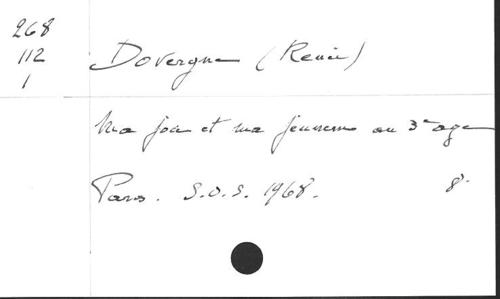 268
112
1
Dovergne (Renée)
Ma joie et ma jeunesse au 3e age
Paris. S.O.S. 1968. 8°